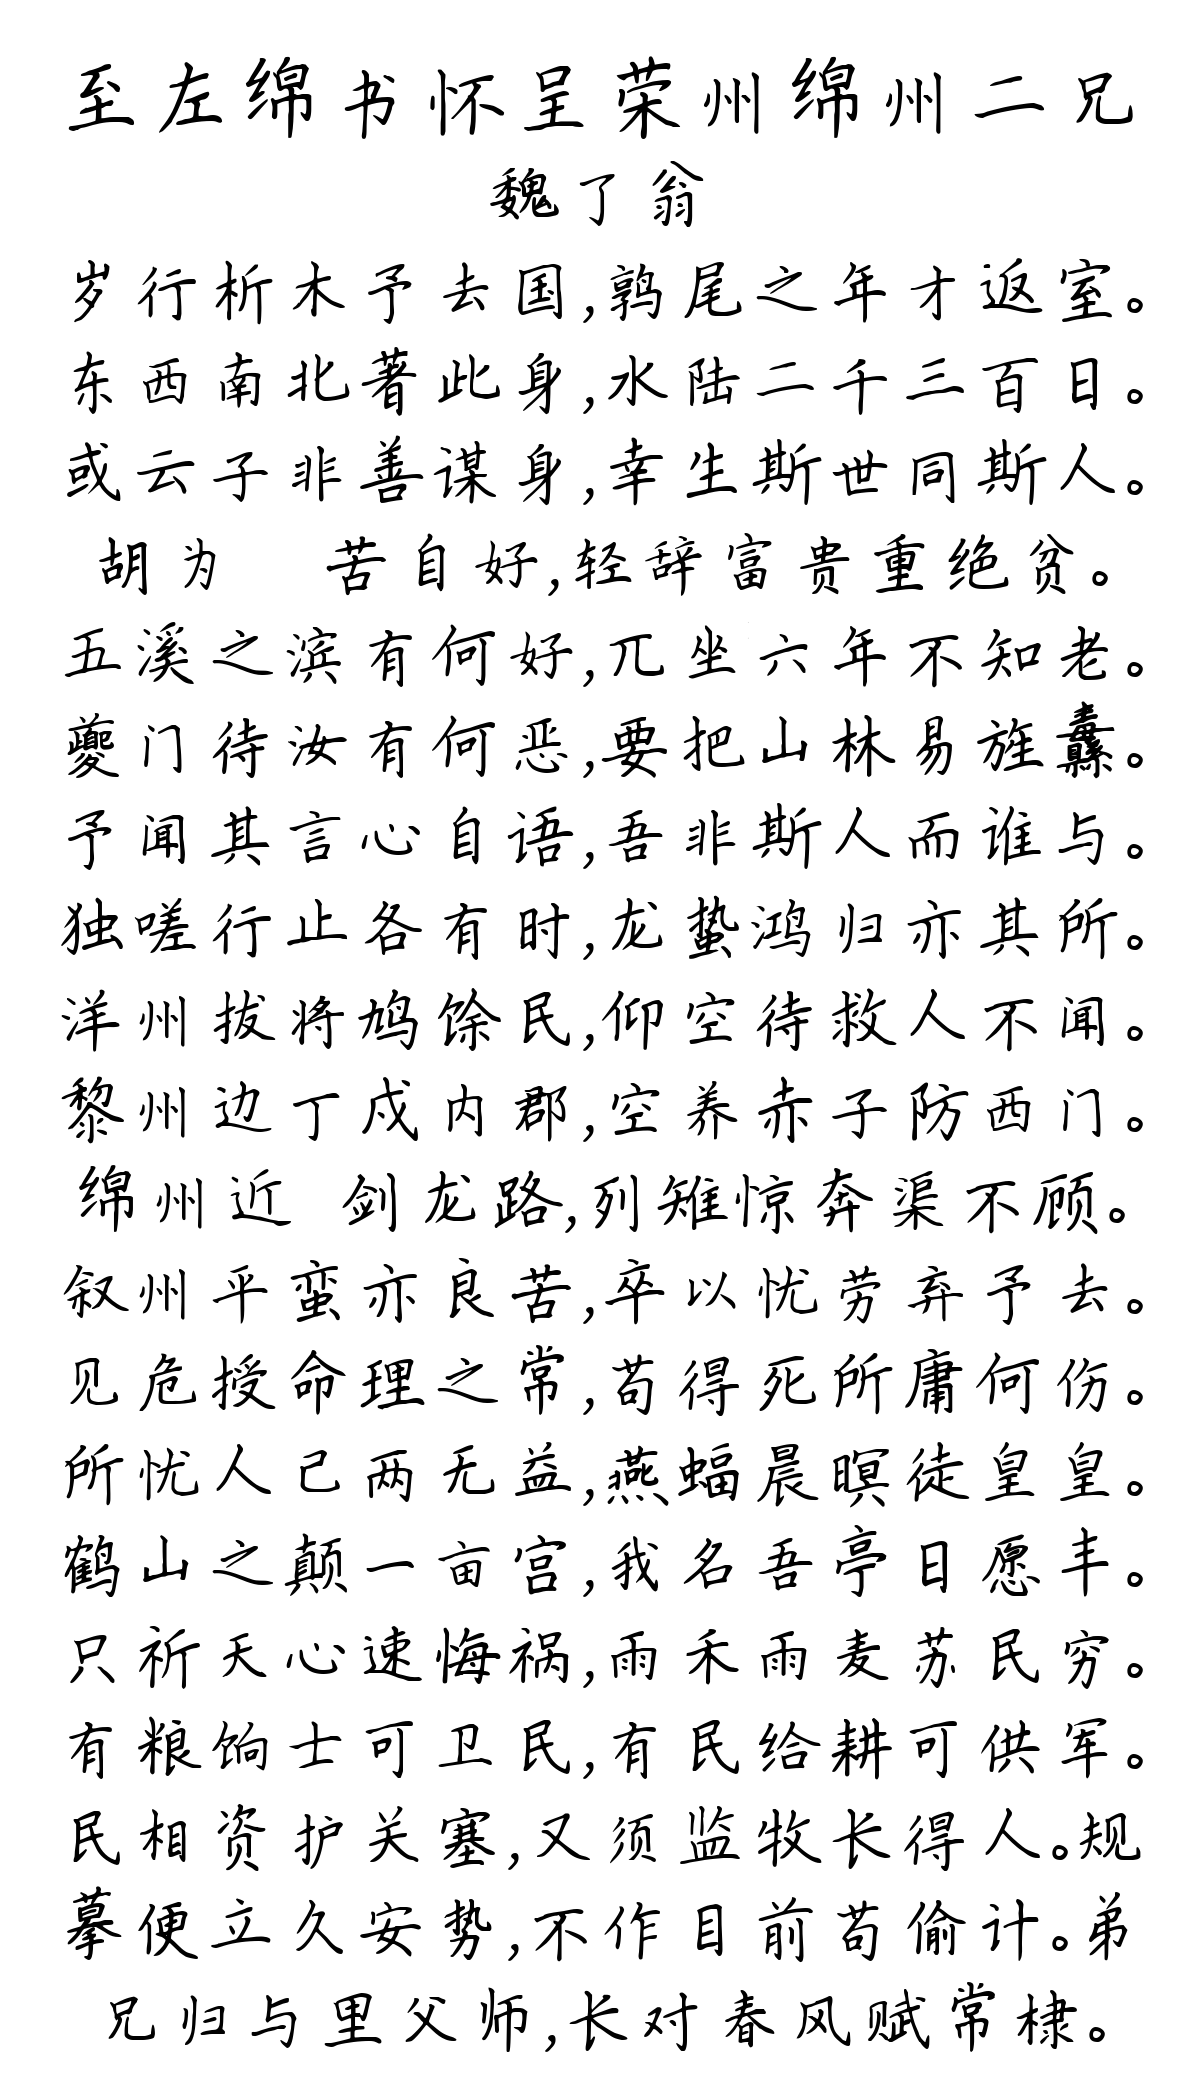 至左绵书怀呈荣州绵州二兄
魏了翁
岁行析木予去国,鹑尾之年才返室。
东西南北著此身,水陆二千三百日。
或云子非善谋身,幸生斯世同斯人。
胡为 苦自好,轻辞富贵重绝贫。
五溪之滨有何好,兀坐六年不知老。
夔门待汝有何恶,要把山林易旌纛。
予闻其言心自语,吾非斯人而谁与。
独嗟行止各有时,龙蛰鸿归亦其所。
洋州拔将鸠馀民,仰空待救人不闻。
黎州边丁戍内郡,空养赤子防西门。
绵州近 剑龙路,列雉惊奔渠不顾。
叙州平蛮亦良苦,卒以忧劳弃予去。
见危授命理之常,苟得死所庸何伤。
所忧人己两无益,燕蝠晨暝徒皇皇。
鹤山之颠一亩宫,我名吾亭日愿丰。
只祈天心速悔祸,雨禾雨麦苏民穷。
有粮饷士可卫民,有民给耕可供军。
民相资护关塞,又须监牧长得人。规
摹便立久安势,不作目前苟偷计。弟
兄归与里父师,长对春风赋常棣。